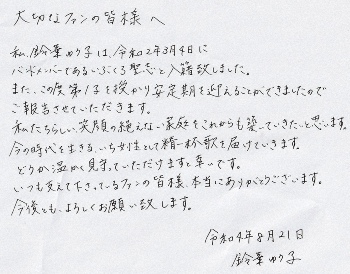 大切なファンの皆様へ
私、鈴華ゆう子は、令和2年3月4日に
バンドメンバーであるいぶくろ聖志と入籍致しました。
また、この度第1子を授かり安定期を迎えることができましたので
ご報告させていただきます。
私たちらしい、笑顔の絶えない家庭をこれからも築いていきたいと思います。
今の時代を生きる、いち女性として精一杯歌を届けていきます。
どうか温かく見守っていただけますと幸いです。
いつも支えて下さっているファンの皆様、本当にありがとうございます。
今後とも、よろしくお願い致します。
令和4年8月21日
鈴華ゆう子